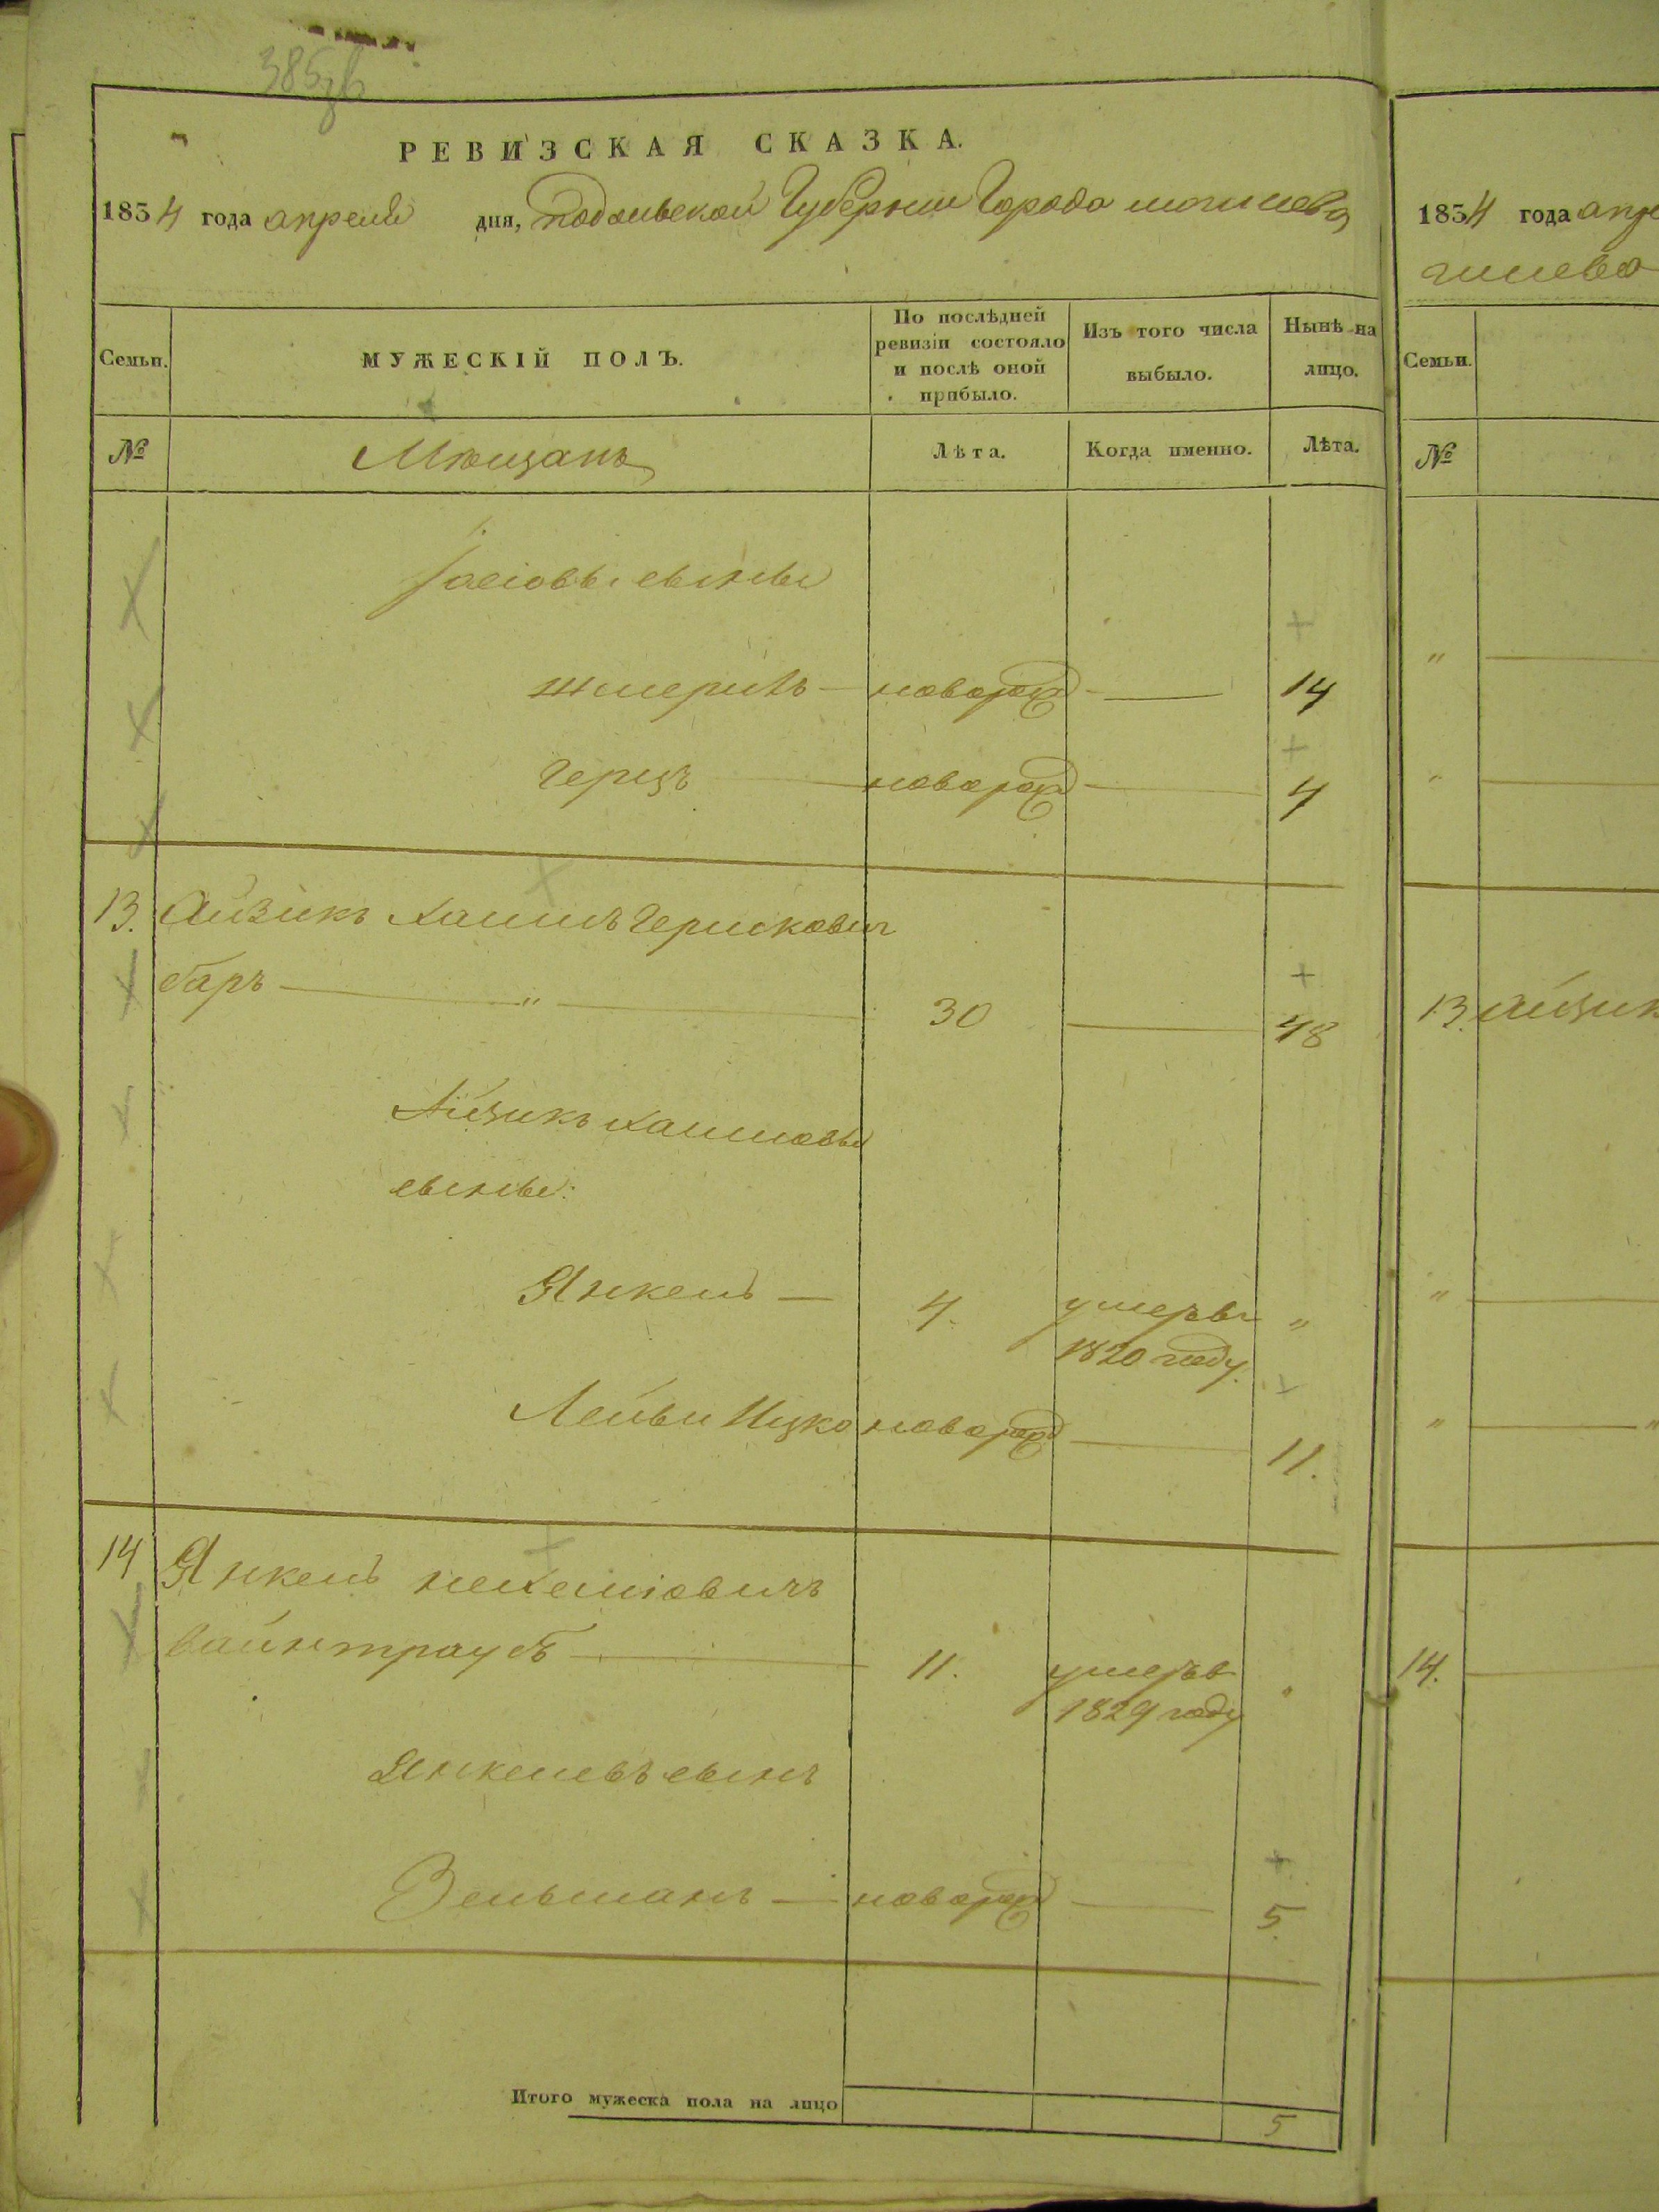 385
РЕВИЗСКАЯ СКАЗКА.
1834 года апреля дня, Подольской Губернии Города могилева
Семьи.
МУЖЕСКІЙ ПОЛЪ.
По послѣдней ревизіи состояло и послѣ оной прибыло.
Изъ того числа выбыло.
Нынѣ на лицо.
№
Мѣщанъ
Лѣта.
Когда именно.
Лѣта.
сыновья
Шмериль — новорожд — 14
Герцъ новорожд — 4
13. Айзикъ Хаимъ Гершкович
баръ — " — 30 — 48
Айзикъ Хаимовы
сыновья:
Янкель — 4. умеръ в "
1820 году.
Лейви Ицко новорожд — 11.
14 Янкель Нехеміовичъ
вайнтраубъ — 11. умеръ в "
1829 году
Янкелевъ сынъ
Зельманъ — новорожд — 5.
Итого мужеска пола на лицо 5
1834 года апре
гилева
Семьи.
№
"
"
13. Айзик
"
" "
14.